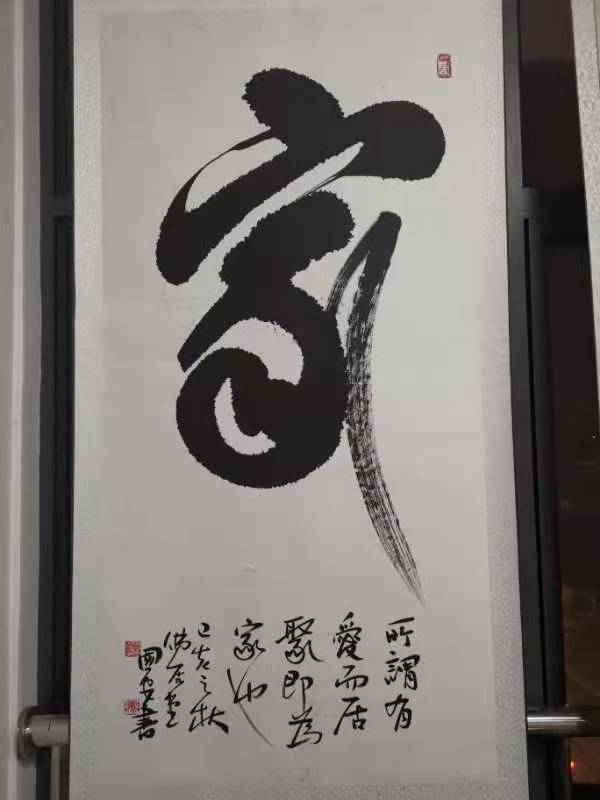 家
所謂有
愛而居
聚即為
家也
己亥之秋
佛居堂
國安書